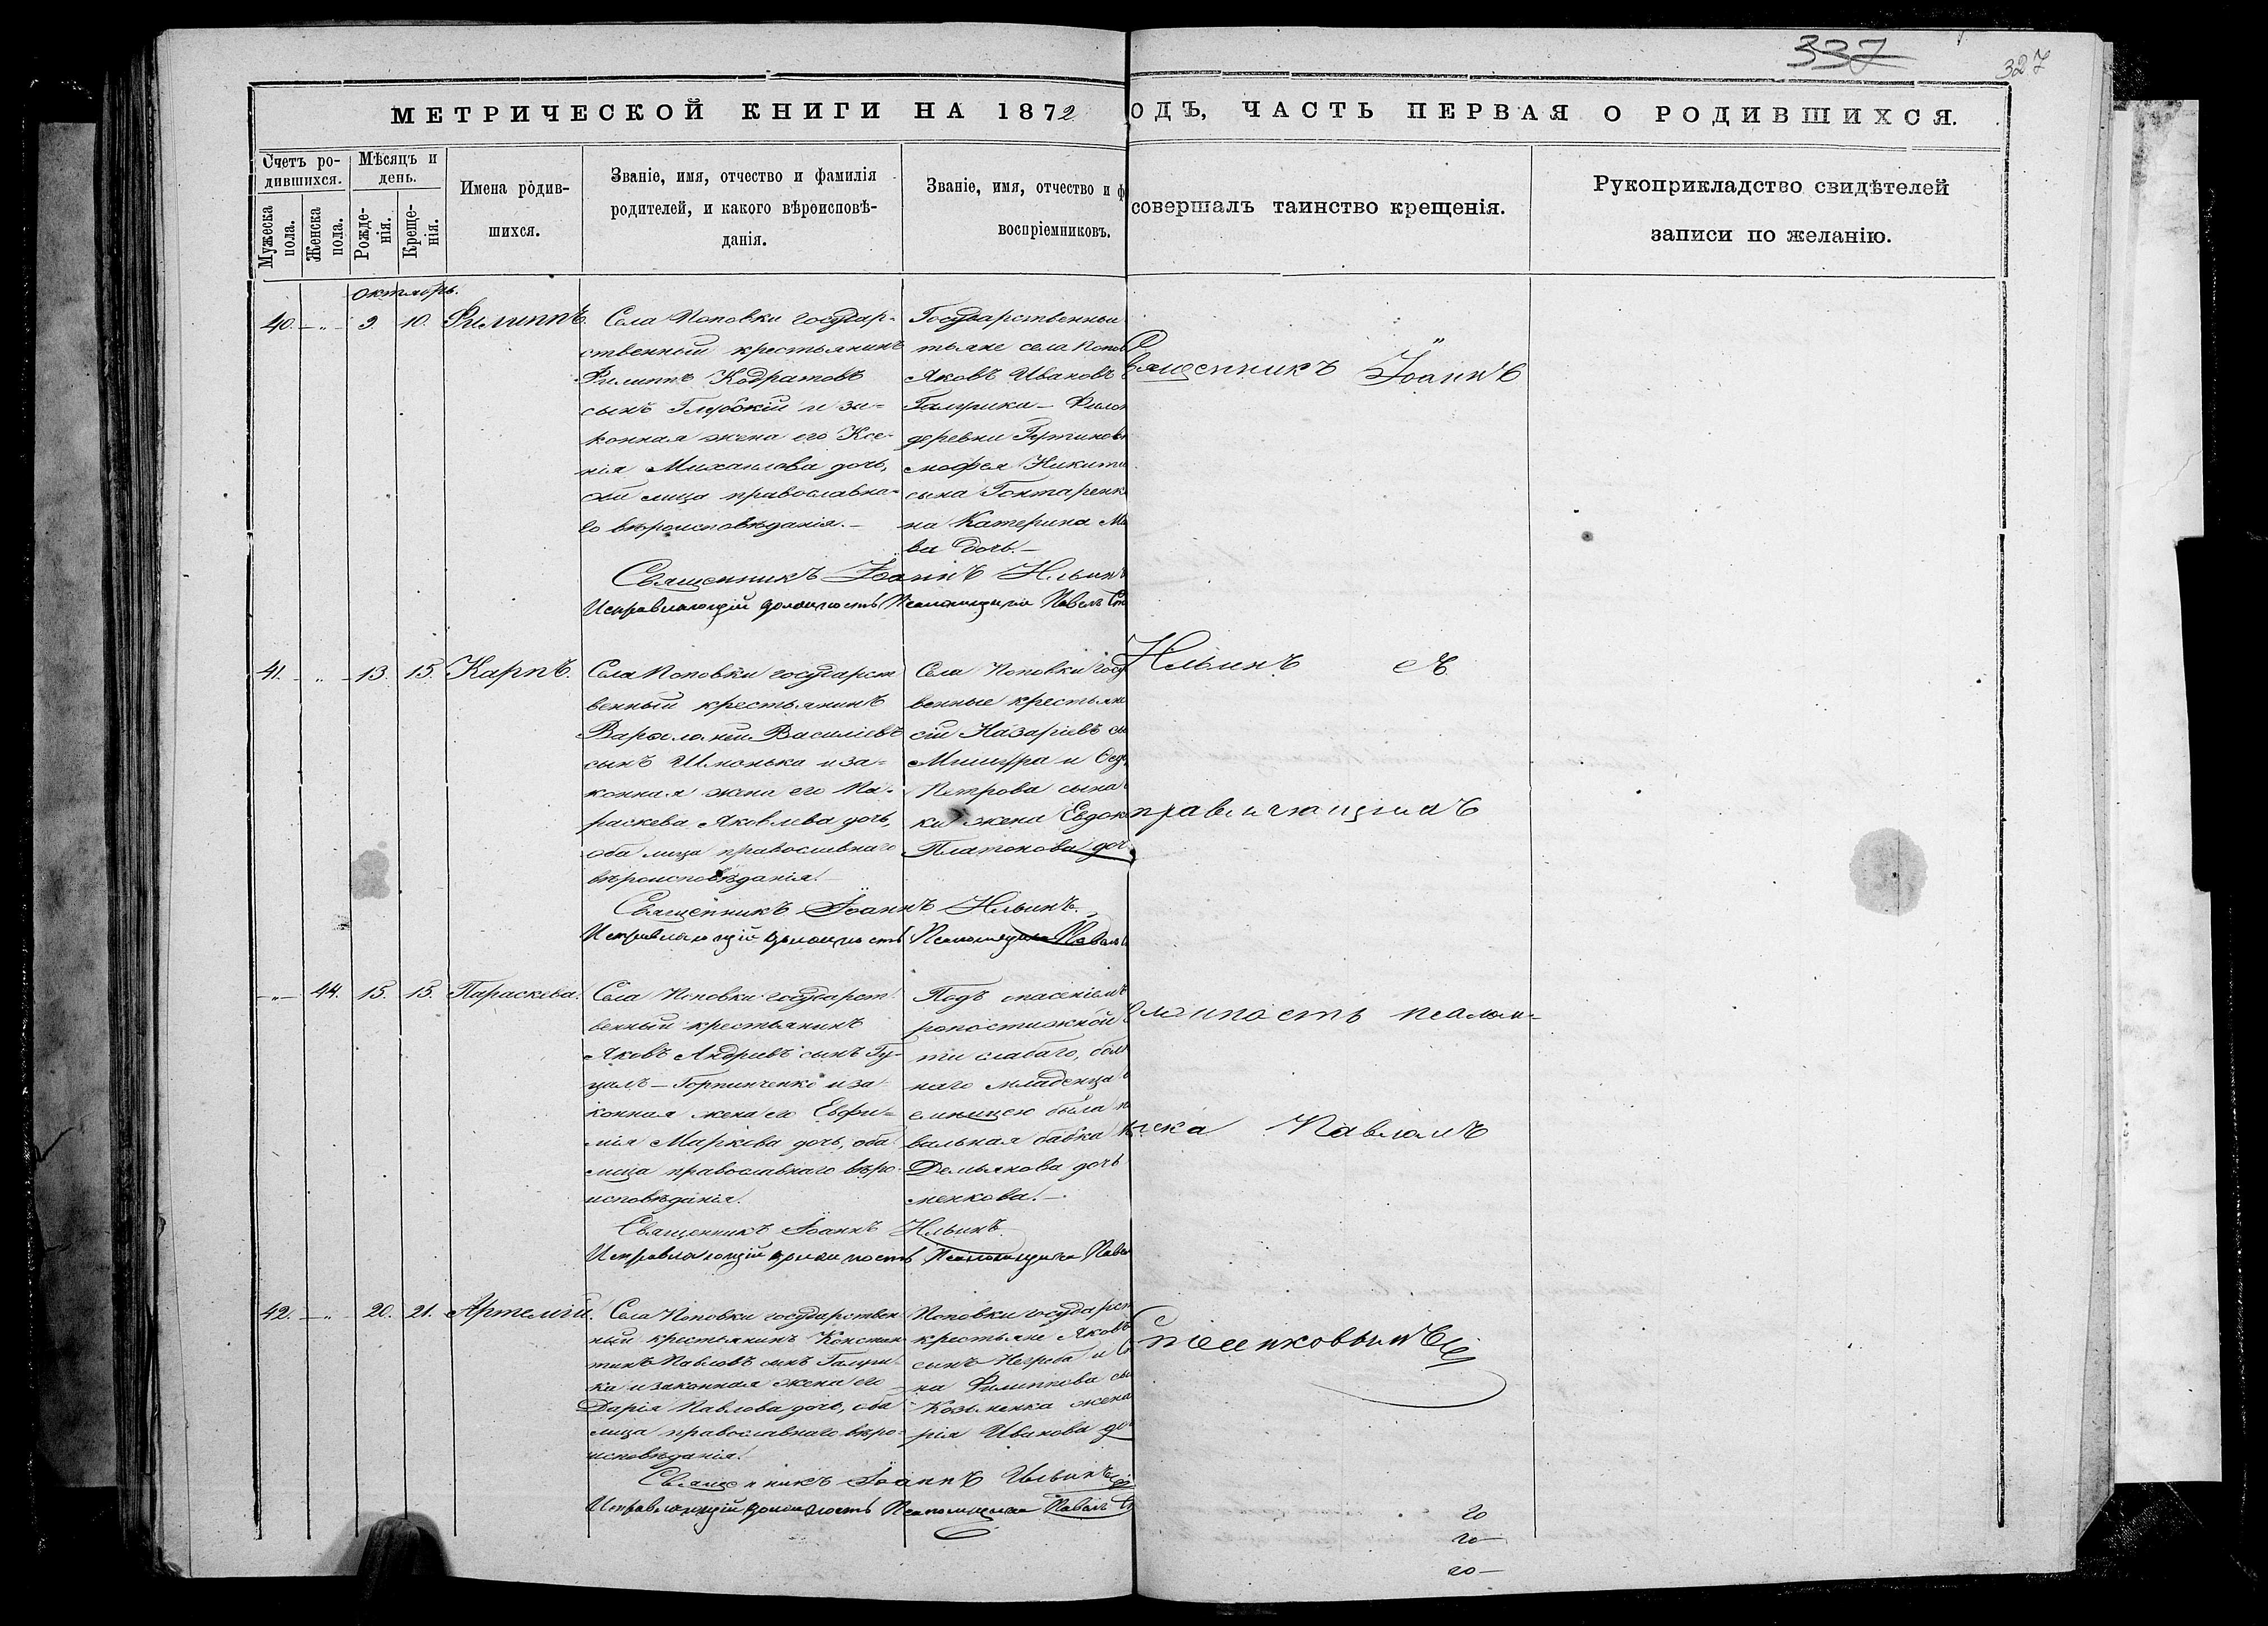 337
327
МЕТРИЧЕСКОЙ КНИГИ НА 1872
ОДЪ, ЧАСТЬ ПЕРВАЯ О РОДИВШИХСЯ.
Счетъ ро-
дившихся.
Мужеска
пола.
Женска
пола.
Мѣсяцъ и
день.
Рожде-
нія.
Креще-
нія.
Имена родив-
шихся.
Званіе, имя, отчество и фамилія
родителей, и какого вѣроисповѣ-
данія.
Званіе, имя, отчество и ф
воспріемниковъ.
совершалъ таинство крещенія.
Рукоприкладство свидѣтелей
записи по желанію.
Октябрь.
40. — „ — 9. 10. Филиппъ.
Села Поповки государ-
ственный крестьянинъ
Филиппъ Кодратовъ
сынъ Глубокій и за-
конная жена его Ксе-
нія Михаилова дочь,
лица православна-
го вѣроисповѣданія. —
Государственны
тьяне села Попов
Яковъ Ивановъ
Галушка —
деревни
мофея Никити
сына Гонтаренк
на Катерина Ма
ва дочь. —
Священникъ Іоаннъ Ильинъ
Исправляющій должность Псаломщика Павелъ
41. — „ — 13. 15. Карпъ.
Села Поповки государст
венный крестьянинъ
Варфоломей Василіевъ
сынъ Шмонька и за-
конная жена его Па-
раскева Яковлева дочь,
оба лица православнаго
вѣроисповѣданія! —
Села Поповки госу
венные крестьян
сій Назаріевъ сы
и
Петрова сына
ки жена Евдок
Платонова доч
Священникъ Іоаннъ Ильинъ.
Исправляющій должность Псаломщика Павелъ
— „ — 44. 15. 15. Параскева.
Села Поповки государст
венный крестьянинъ
Яковъ Андріевъ сынъ Гу-
цалъ — Горпинченко и за
конная жена его Евфи-
мія Маркова дочь, оба
лица православнаго вѣро-
исповѣданія!
Подъ опасеніемъ
ропостижной
ти слабаго, боль
наго младенца
емницею была п
вальная бабка
Демьянова дочь
менкова! —
Священникъ Іоаннъ Ильинъ.
Исправляющій должность Псаломщика Паве
42. — „ — 20. 21. Артемій.
Села Поповки государствен
ный крестьянинъ Констан
тинъ Павловъ сынъ Галуш-
ка и законная жена его
Дарія Павлова дочь, оба
лица православнаго вѣро-
исповѣданія!
Поповки государст
крестьяне Яковъ
сынъ Негреба и
на Филиппова сы
Козьменка жена
рія Иванова до
Священникъ Іоаннъ Ильинъ
Исправляющій должность Псаломщика Павелъ
Священникъ Іоаннъ
Ильинъ съ
правляющимъ
олжность псалом-
щика Павломъ
20
20 —
20 —